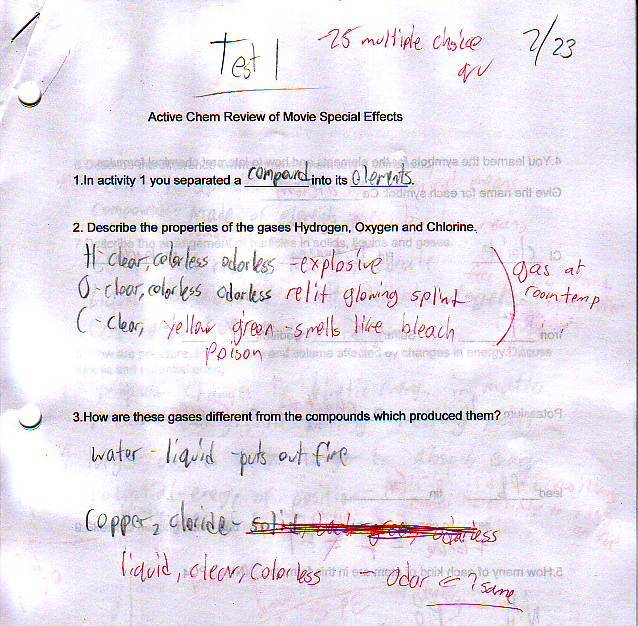 Test 1 -25 multiple choice 2/23
qu
Active Chem Review of Movie Special Effects
1.In activity 1 you separated a compound into its elements.
2. Describe the properties of the gases Hydrogen, Oxygen and Chlorine.
H-clear, colorless odorless -explosive
O-clear, colorless odorless relit glowing splint
C-clear, yellow green -smells like bleach
poison
gas at
room temp
3.How are these gases different from the compounds which produced them?
water - liquid -puts out fire
Copper, cloride- solid, odorless
liquid, clear, colorless - odor same